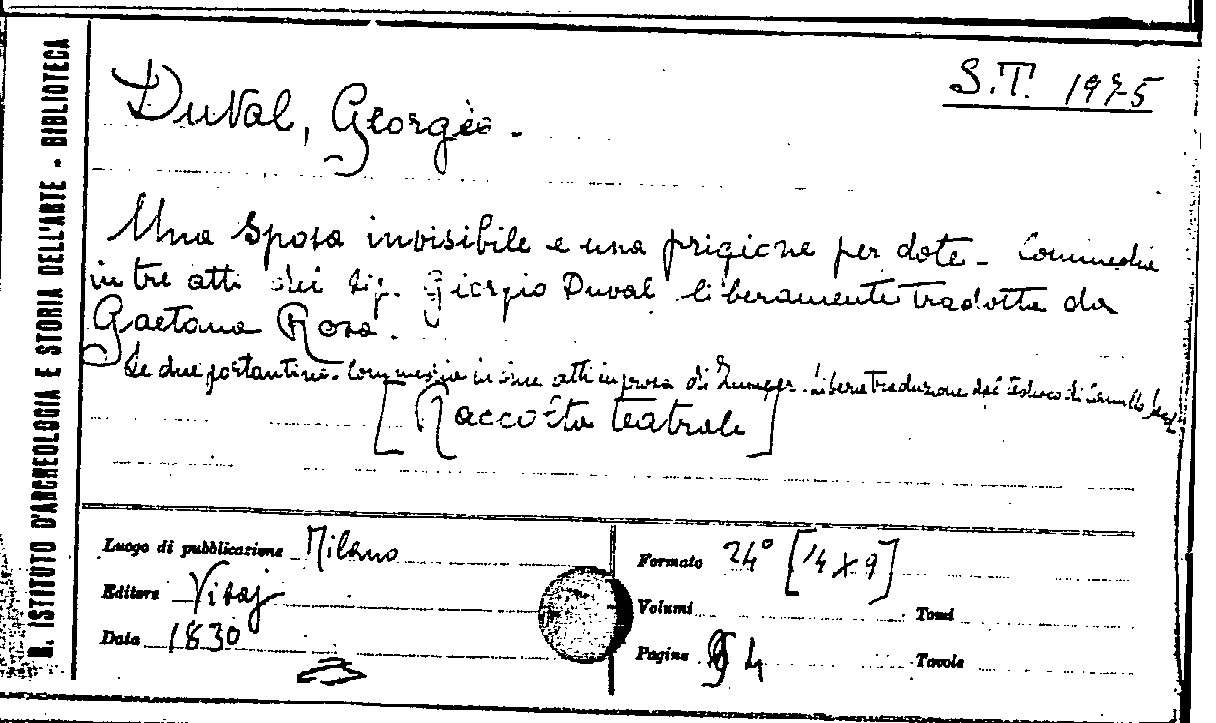 R. ISTITUTO D'ARCHEOLOGIA E STORIA DELL'ARTE - BIBLIOTECA
S.T. 1975
Duval, Georgio.
Una sposa invisibile e una prigione per dote - Commedia
in tre atti del sig. Giorgio Duval liberamente tradotta da
Gaetano Rosa.
Le due portantine. Commedia in due atti in prosa di Libera traduzione del tedesco di
[Raccolta teatrale]
Luogo di pubblicazione Milano
Editore
Data 1830
Formato 24° [14 x 9]
Volumi Tomi
Pagine 4 Tavole